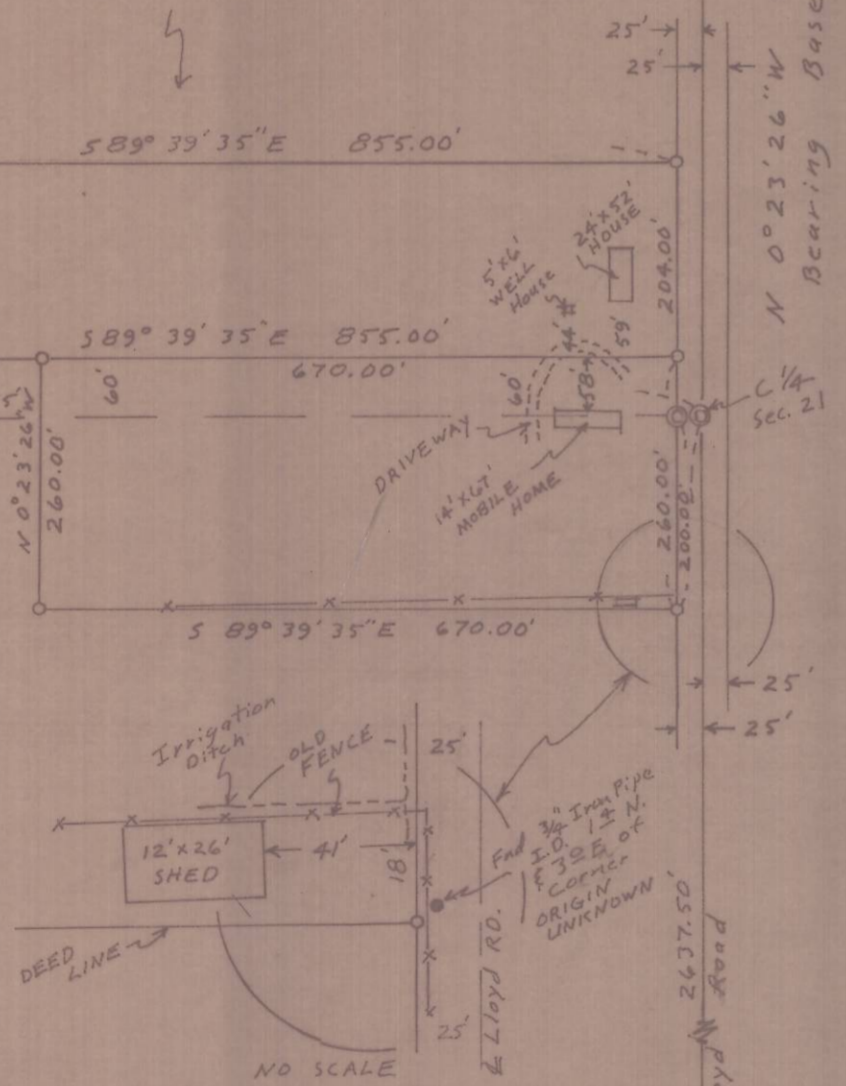 25'
25'
N 0° 23' 26" W
Bearing Base
S 89° 39' 35" E 855.00'
24' x 52'
HOUSE
5' x 6'
WELL
House
204.00'
44'
59'
S 89° 39' 35" E 855.00'
670.00'
60'
60'
58'
C 1/4
Sec. 21
N 0° 23' 26" W
260.00'
DRIVEWAY
14' x 67'
MOBILE
HOME
260.00'
200.00'
S 89° 39' 35" E 670.00'
25'
25'
Irrigation
Ditch
OLD
FENCE
25'
12' x 26'
SHED
41'
18'
Fnd 3/4" Iron Pipe
I.D. 1.4 N.
& 3.0 E. of
Corner
ORIGIN
UNKNOWN
DEED
LINE
25'
℄ Lloyd RD.
2637.50'
Road
yd
NO SCALE